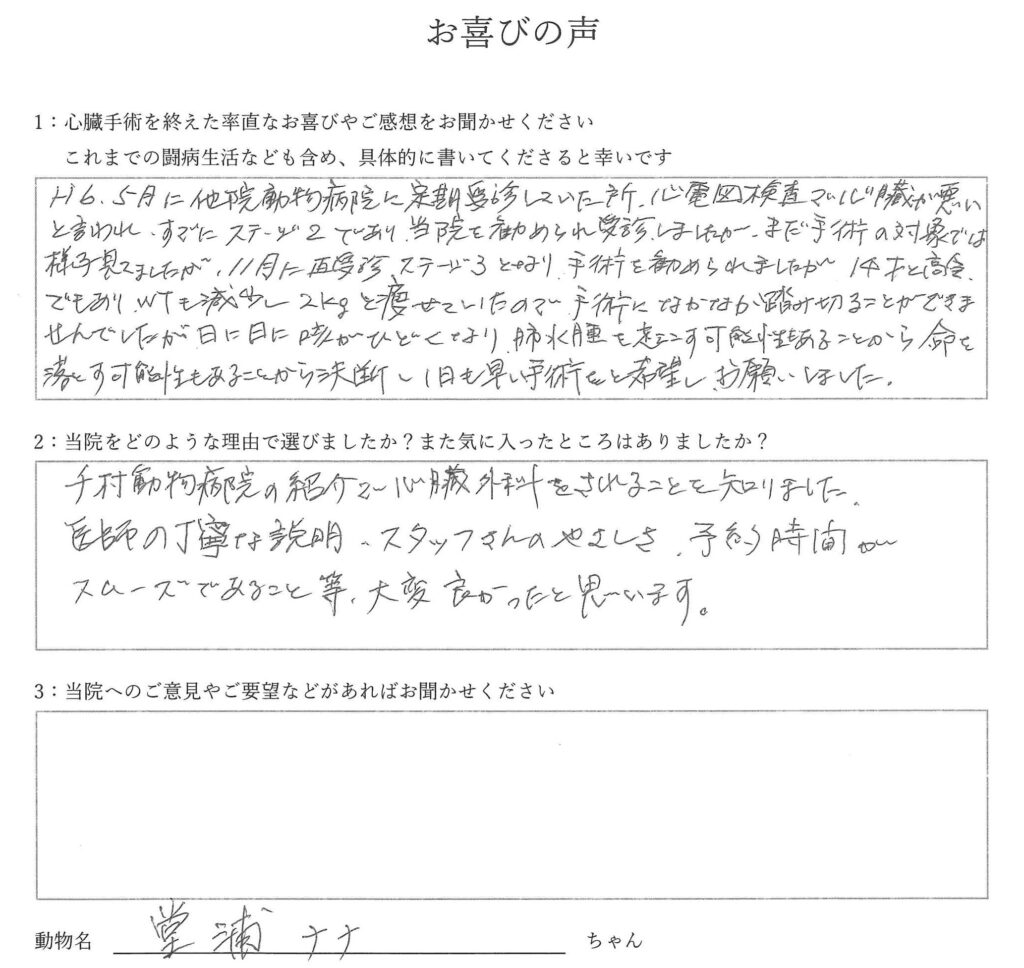 お喜びの声
1：心臓手術を終えた率直なお喜びやご感想をお聞かせください
これまでの闘病生活なども含め、具体的に書いてくださると幸いです
H6.5月に他院動物病院に定期受診していた所、心電図検査で心臓が悪い
と言われ、すでにステージ2であり、当院を勧められ受診しましたが、まだ手術の対象では
様子見てましたが、11月に再受診、ステージ3となり、手術を勧められましたが 14才と高令
でもあり、WTも減少し2kgと痩せていたので手術になかなか踏み切ることができま
せんでしたが日に日に咳がひどくなり、肺水腫を起こす可能性もあることから命を
落とす可能性もあることから決断し1日も早い手術をと希望し、お願いしました。
2：当院をどのような理由で選びましたか？また気に入ったところはありましたか？
千村動物病院の紹介で心臓外科をされることを知りました。
医師の丁寧な説明、スタッフさんのやさしさ、予約時間が
スムーズであること等、大変良かったと思います。
3：当院へのご意見やご要望などがあればお聞かせください
動物名 堂浦 ナナ ちゃん